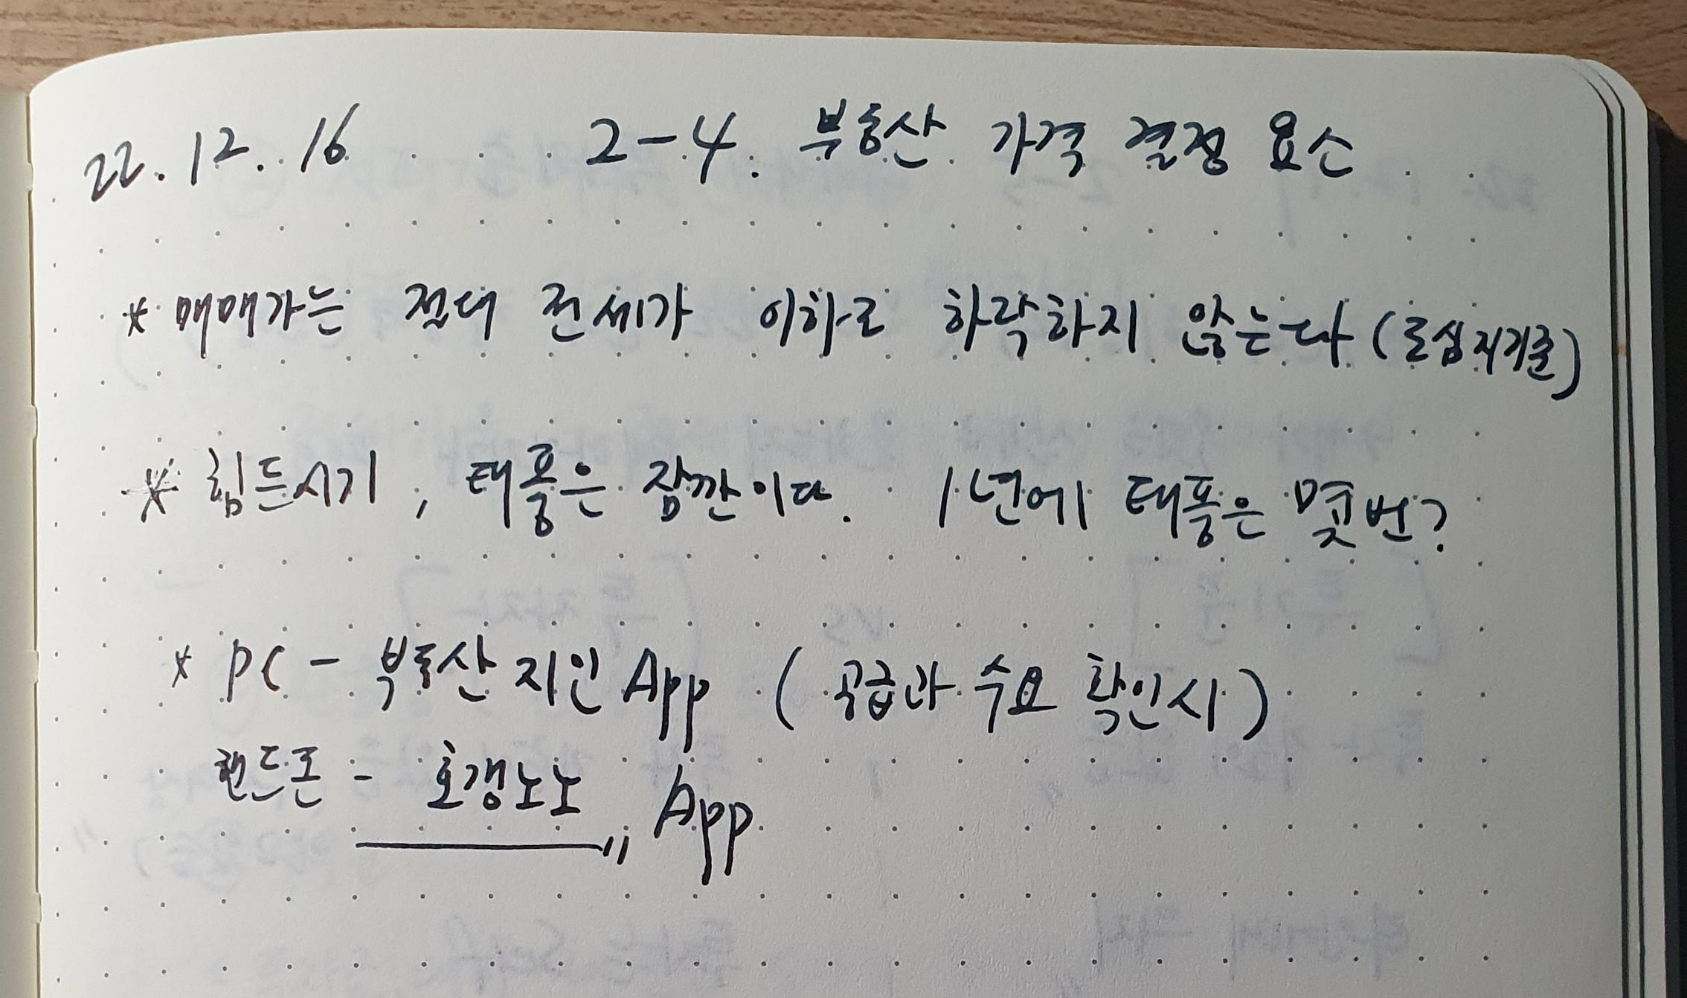 22.12.16 2-4. 부동산 가격 결정 요소
* 매매가는 절대 전세가 이하로 하락하지 않는다 (도심지기준)
* 힘든시기, 태풍은 잠깐이다. 1년에 태풍은 몇번?
* PC - 부동산지인 App (공급과 수요 확인시)
핸드폰 - 호갱노노 〃 App